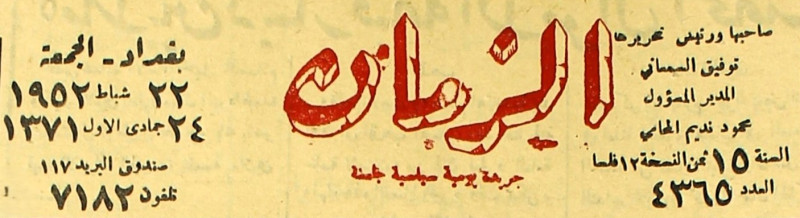 صاحبها ورئيس تحريرها
توفيق السمعاني
المدير المسؤول
محمود نديم المحامي
السنة ١٥ ثمن النسخة ١٢ فلسا
العدد ٤٣٦٥
الزمان
جريدة يومية سياسية جامعة
بغداد - الجمعة
٢٢ شباط ١٩٥٢
٢٤ جمادى الاول ١٣٧١
صندوق البريد ١١٧
تلفون ٧١٨٢